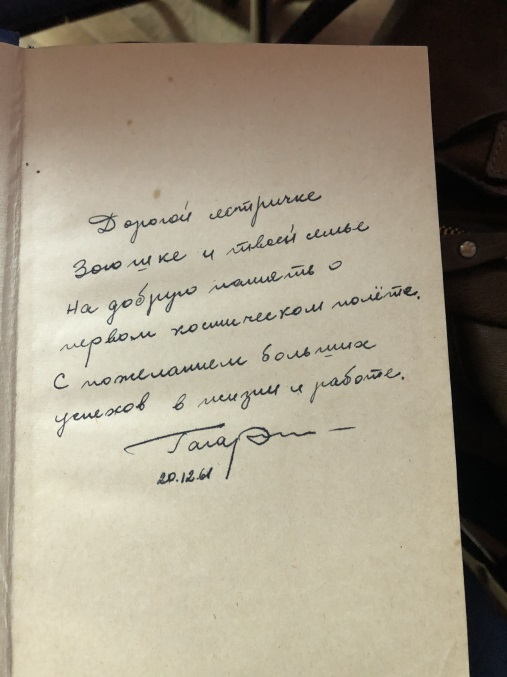 Дорогой сестричке
Зоюшке и твоей семье
на добрую память о
первом космическом полёте.
С пожеланием больших
успехов в жизни и работе.
Гагарин
20.12.61